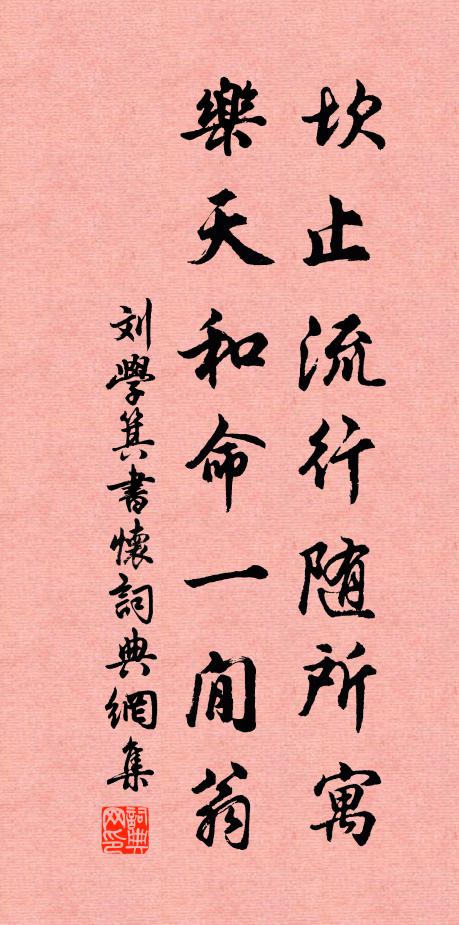 坎止流行随所寓
樂天和命一閒翁
刘學箕書懷詞典網集
詞典网印